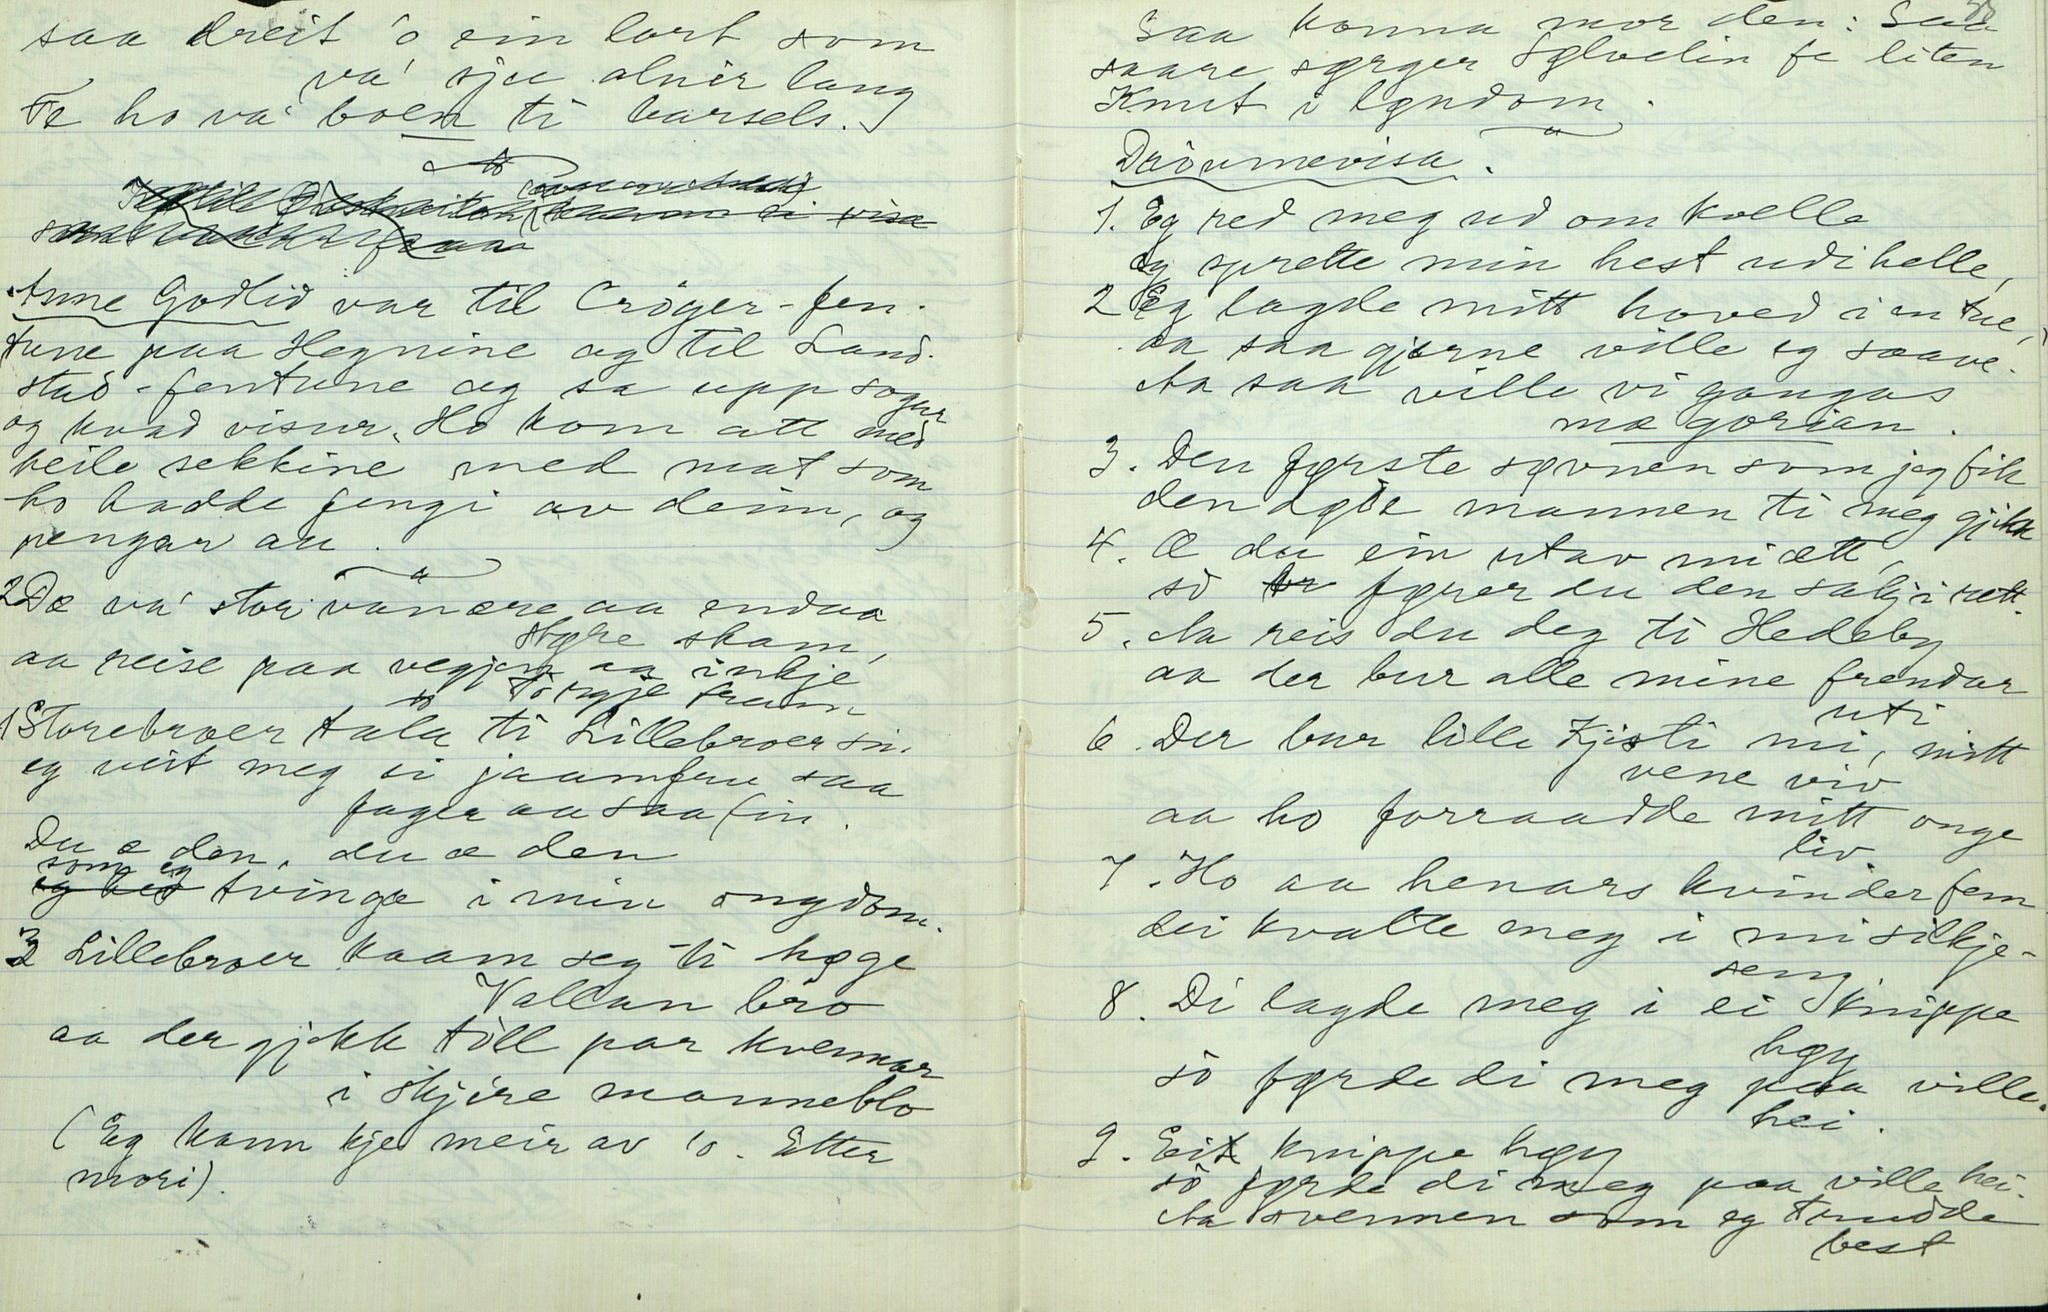 saa dreit 'o ein lort som
va' sju alnir lang
Te ho va' boen ti barsels.
visa
Anne Godlid var til Crøger-fen-
tune paa Hegnine og til Land-
stad-fentune og sa upp sogur
og kvad visur. Ho kom att med
heile sekkine med mat som
ho hadde fengi av deim, og
pengar au.
2 Dæ va' stor vanære aa endaa
større skam,
aa reise paa vegjen aa inkje
tørgje fram
1 Storebroer tala ti Lillebroer sin.
eg veit meg ei jaamfru saa
fager aa saa fin.
Du æ den, du æ den
som eg
eg tvinga i min ongdom.
3 Lillebroer kaam seg ti høge
Vallan bro
aa der gjekk till par kvennar
i skjire manneblo
(Eg kann kje meir av 'o. Etter
mori).
Saa konna mor den: Saa
saare sørger Sølvelin fe liten
Knut i løndom.
Draumevisa.
1. Eg red meg ud om kvelle
eg sprette min hest udi helle,
2 Eg lagde mitt hoved i en tue,
aa saa gjerne ville eg saave.
Aa saa ville vi gangas
mæ gorian.
3. Den første søvnen som jeg fik
den døde mannen ti meg gjikk
4. Æ du ein utav mi ætt,
so fører du den sakj i rett.
5. Aa reis du deg ti Hedeby
aa der bur alle mine frendar
uti
6. Der bur lille Kjisti mi, mitt
vene viv
aa ho forraadde mitt onge
liv.
7. Ho aa henars kvinder fem
dei kvalte meg i mi silkje-
seng.
8. Di lagde meg i ei knippe
høy
so førde di meg paa ville
hei.
9. Eit knippe høy
so førde di meg paa ville hei.
Aa svennen som eg trudde
best